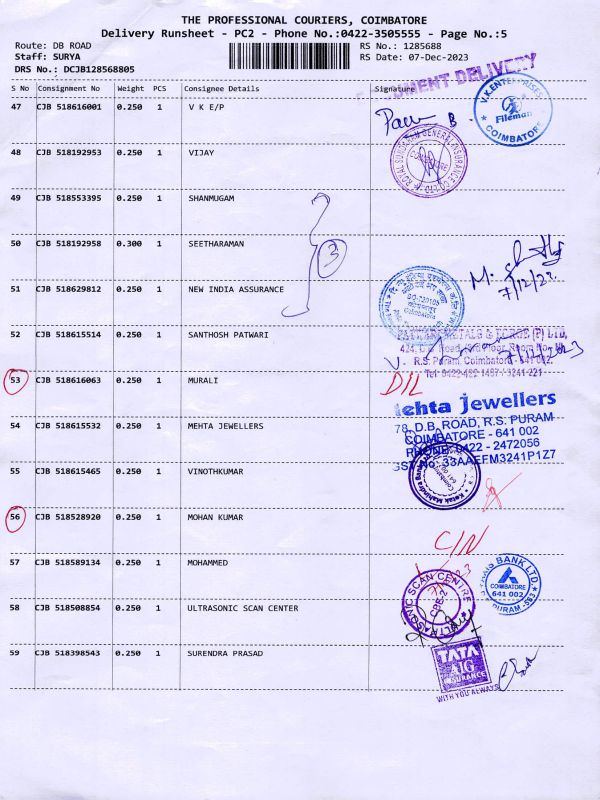 THE PROFESSIONAL COURIERS, COIMBATORE
Delivery Runsheet - PC2 - Phone No.:0422-3505555 - Page No.:5
Route: DB ROAD
RS No.: 1285688
Staff: SURYA
RS Date: 07-Dec-2023
DRS No.: DCJB128568805
DELIVERY
S No Consignment No Weight PCS Consignee Details Signature
47 CJB 518616001 0.250 1 V K E/P
V.K.ENTERPRISES
Fileman
COIMBATORE
48 CJB 518192953 0.250 1 VIJAY
ROYAL SUNDARAM GENERAL INSURANCE CO LTD
49 CJB 518553395 0.250 1 SHANMUGAM
50 CJB 518192958 0.300 1 SEETHARAMAN
3
M.
7/12/23
51 CJB 518629812 0.250 1 NEW INDIA ASSURANCE
52 CJB 518615514 0.250 1 SANTHOSH PATWARI
METALS & (P) LTD,
R.S. Puram, Coimbatore - 641 002.
53 CJB 518616063 0.250 1 MURALI
D/L
54 CJB 518615532 0.250 1 MEHTA JEWELLERS
ehta jewellers
78, D.B. ROAD, R.S. PURAM
COIMBATORE - 641 002
PHONE: 0422 - 2472056
GST No: 33AAEFM3241P1Z7
55 CJB 518615465 0.250 1 VINOTHKUMAR
Kotak Mahindra
56 CJB 518528920 0.250 1 MOHAN KUMAR
C/N
57 CJB 518589134 0.250 1 MOHAMMED
BANK LTD.
COIMBATORE
641 002
PURAM
58 CJB 518508854 0.250 1 ULTRASONIC SCAN CENTER
ULTRASONIC SCAN CENTRE
CBE-2
59 CJB 518398543 0.250 1 SURENDRA PRASAD
TATA
AIG
INSURANCE
WITH YOU ALWAYS